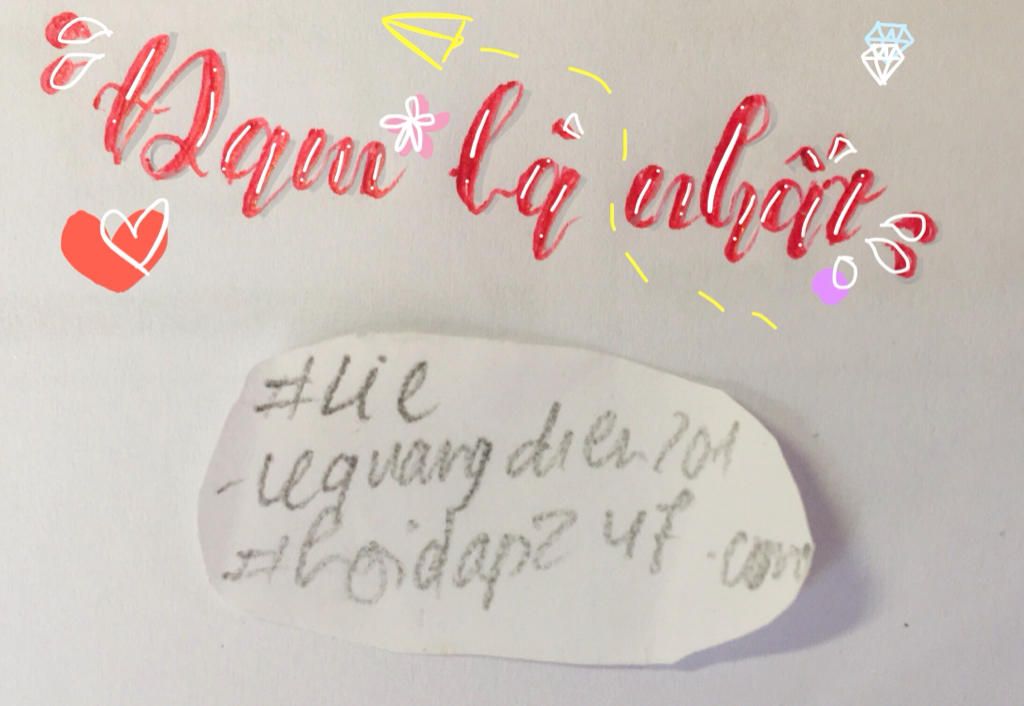 Đam là nhất
#Lie
-lequangdien201
#hoidap247.com